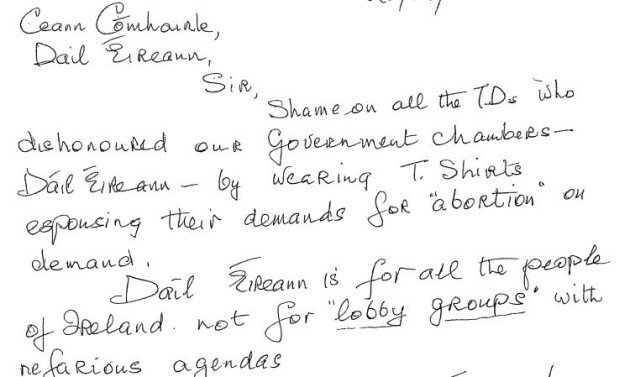 Ceann Comhairle,
Dáil Éireann,
Sir,
Shame on all the TDs who
dishonoured our Government chambers—
Dáil Éireann — by wearing T. Shirts
espousing their demands for "abortion" on
demand.
Dáil Éireann is for all the people
of Ireland. not for "lobby groups" with
nefarious agendas